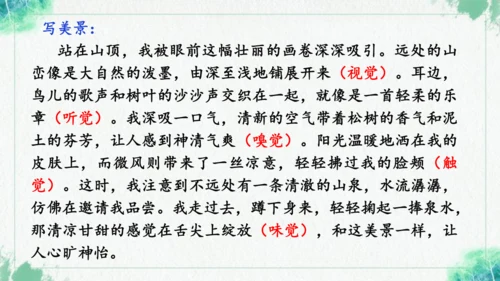 写美景：
站在山顶，我被眼前这幅壮丽的画卷深深吸引。远处的山
峦像是大自然的泼墨，由深至浅地铺展开来（视觉）。耳边，
鸟儿的歌声和树叶的沙沙声交织在一起，就像是一首轻柔的乐
章（听觉）。我深吸一口气，清新的空气带着松树的香气和泥
土的芬芳，让人感到神清气爽（嗅觉）。阳光温暖地洒在我的
皮肤上，而微风则带来了一丝凉意，轻轻拂过我的脸颊（触
觉）。这时，我注意到不远处有一条清澈的山泉，水流潺潺，
仿佛在邀请我品尝。我走过去，蹲下身来，轻轻掬起一捧泉水，
那清凉甘甜的感觉在舌尖上绽放（味觉），和这美景一样，让
人心旷神怡。